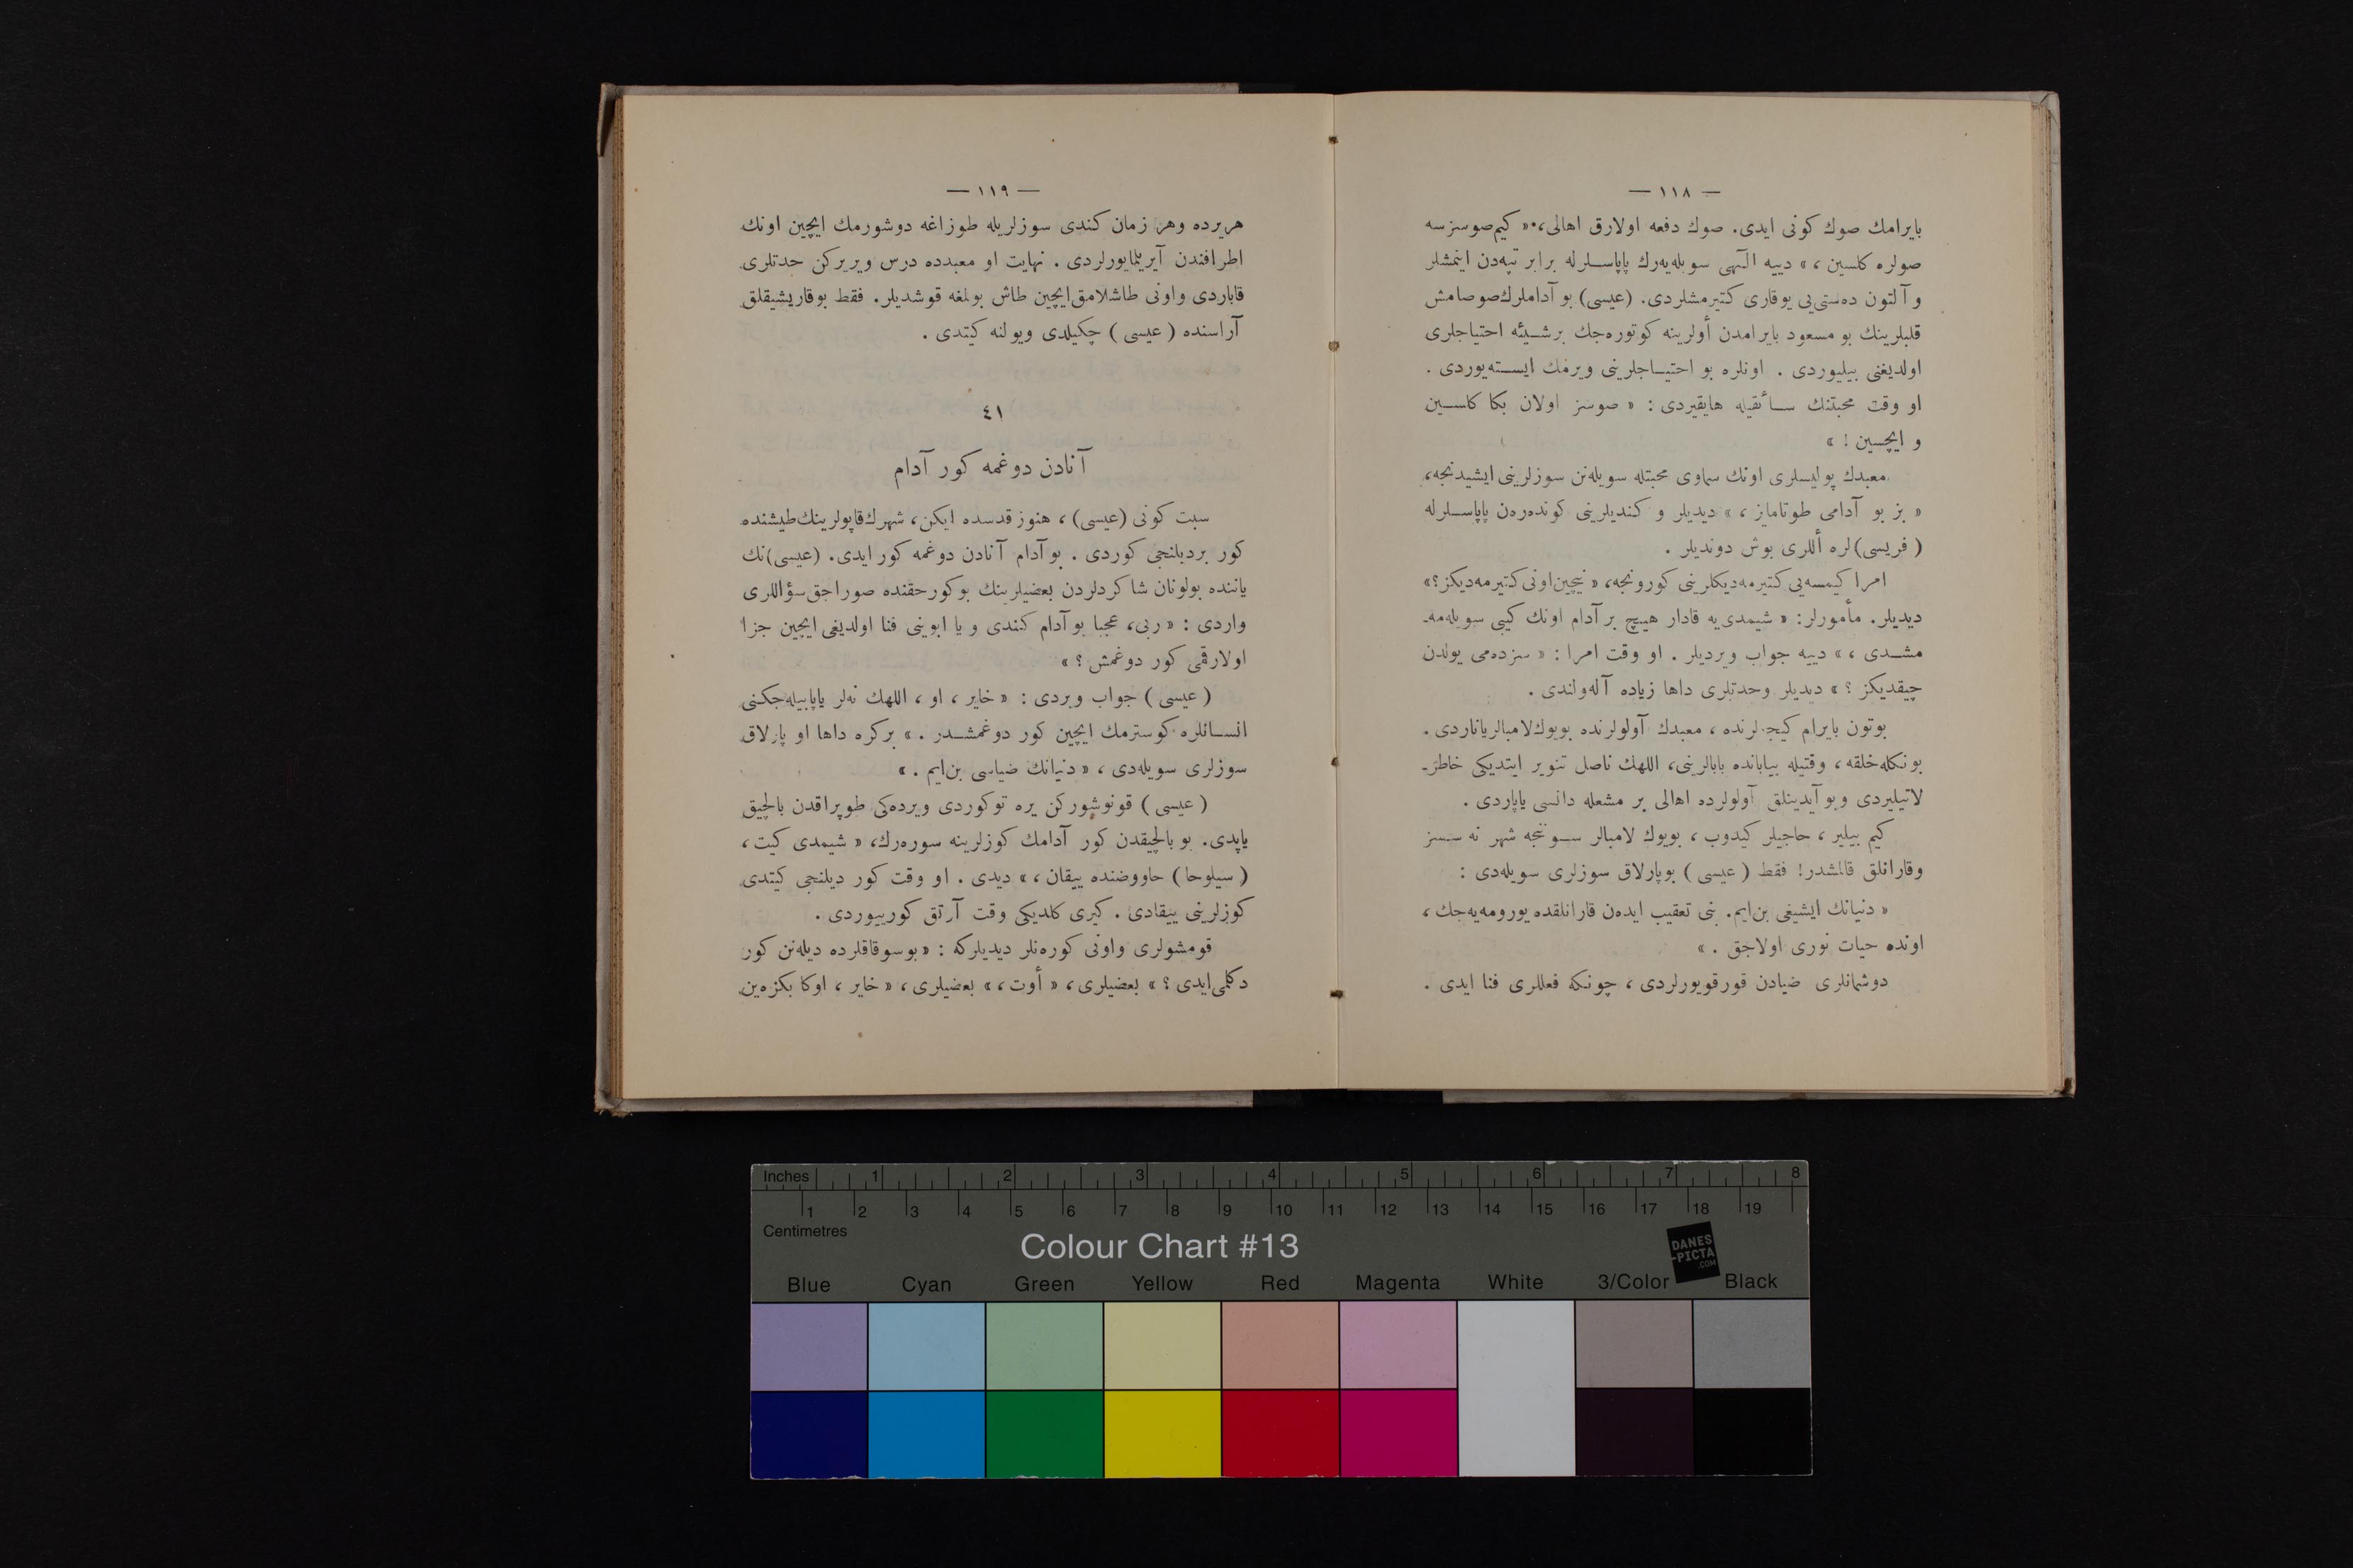 — ١١٨ —
بايرامك صوك كونى ايدى. صوك دفعه اولارق اهالى، « كيم صوسزسه
صولره كلسين ، » دييه الٓهى سويله‌يه‌رك پاپاسلرله برابر تپه‌دن اينمشلر
و آلتون ده‌ستى‌يى يوقارى كتيرمشلردى. (عيسى) بو آداملرك صوصامش
قلبلرينك بو مسعود بايرامدن أولرينه كوتوره‌جك برشيئه احتياجلرى
اولديغنى بيليوردى . اونلره بو احتياجلرينى ويرمك ايسته‌يوردى .
او وقت محبتنك سائقيله هايقيردى : « صوسز اولان بكا كلسين
و ايچسين ! »
معبدك پوليسلرى اونك سماوى محبتله سويله‌نن سوزلرينى ايشيدنجه،
« بز بو آدامى طوتامايز ، » ديديلر و كنديلرينى كونده‌ره‌ن پاپاسلرله
( فريسى)لره أللرى بوش دونديلر .
امرا كيمسه‌يى كتيرمه‌ديكلرينى كورونجه، « نيچين اونى كتيرمه‌ديكز ؟»
ديديلر. مأمورلر: « شيمدى‌يه قادار هيچ بر آدام اونك كيبى سويله‌مه-
مشدى ، » دييه جواب ويرديلر . او وقت امرا : « سزده‌مى يولدن
چيقديكز ؟ » ديديلر وحدتلرى داها زياده آله‌ولندى .
بوتون بايرام كيجه‌لرنده ، معبدك آولولرنده بويوك لامبالر ياناردى .
بونكله خلقه ، وقتيله بيابانده بابالرينى، اللهك ناصل تنوير ايتديكى خاطر-
لاتيليردى وبو آيدينلق آولولرده اهالى بر مشعله دانسى ياپاردى .
كيم بيلير ، حاجيلر كيدوب ، بويوك لامبالر سونجه شهر نه سسز
وقارانلق قالمشدر! فقط ( عيسى ) بوپارلاق سوزلرى سويله‌دى :
« دنيانك ايشيغى بن‌ايم. بنى تعقيب ايده‌ن قارانلقده يورومه‌يه‌جك ،
اونده حيات نورى اولاجق . »
دوشمانلرى ضيادن قورقويورلردى ، چونكه فعللرى فنا ايدى .
— ١١٩ —
هريرده وهر زمان كندى سوزلريله طوزاغه دوشورمك ايچين اونك
اطرافندن آيريلمايورلردى . نهايت او معبدده درس ويريركن حدتلرى
قاباردى واونى طاشلامق ايچين طاش بولمغه قوشديلر. فقط بوقاريشيقلق
آراسنده ( عيسى ) چكيلدى ويولنه كيتدى .
٤١
آنادن دوغمه كور آدام
سبت كونى (عيسى) ، هنوز قدسده ايكن، شهرك قاپولرينك طيشنده
كور بر ديلنجى كوردى . بو آدام آنادن دوغمه كور ايدى. (عيسى)نك
ياننده بولونان شاكردلردن بعضيلرينك بو كور حقنده صوراجق سؤاللرى
واردى : « ربى، عجبا بو آدام كندى و يا ابوينى فنا اولديغى ايچين جزا
اولارقمى كور دوغمش ؟ »
( عيسى ) جواب ويردى : « خاير ، او ، اللهك نه‌لر ياپابيله‌جكنى
انسانلره كوسترمك ايچين كور دوغمشدر . » بركره داها او پارلاق
سوزلرى سويله‌دى ، « دنيانك ضياسى بن‌ايم . »
( عيسى ) قونوشوركن يره توكوردى ويرده‌كى طوپراقدن بالچيق
ياپدى. بو بالچيقدن كور آدامك كوزلرينه سوره‌رك، « شيمدى كيت ،
( سيلوحا ) حاووضنده ييقان ، » ديدى . او وقت كور ديلنجى كيتدى
كوزلرينى ييقادى . كيرى كلديكى وقت آرتق كوريیوردى .
قومشولرى واونى كوره‌نلر ديديلركه : « بوسوقاقلرده ديله‌نن كور
دكلمى‌ايدى ؟ » بعضيلرى ، « أوت ، » بعضيلرى ، « خاير ، اوكا بكزه‌ين
Inches 1 2 3 4 5 6 7 8
1 2 3 4 5 6 7 8 9 10 11 12 13 14 15 16 17 18 19
Centimetres
Colour Chart #13
DANES
-PICTA
.COM
Blue Cyan Green Yellow Red Magenta White 3/Color Black